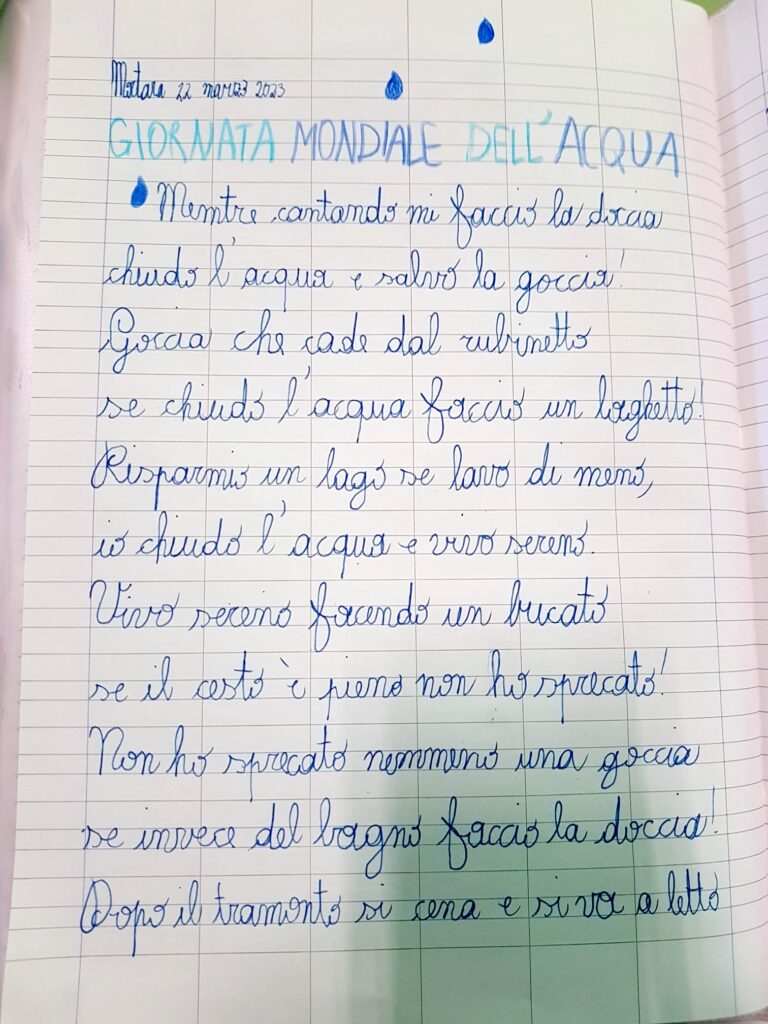 Mortara 22 marzo 2023
GIORNATA MONDIALE DELL'ACQUA
Mentre cantando mi faccio la doccia
chiudo l'acqua e salvo la goccia!
Goccia che cade dal rubinetto
se chiudo l'acqua faccio un laghetto!
Risparmio un lago se lavo di meno,
io chiudo l'acqua e vivo sereno.
Vivo sereno facendo un bucato
se il cesto è pieno non ho sprecato!
Non ho sprecato nemmeno una goccia
se invece del bagno faccio la doccia!
Dopo il tramonto si cena e si va a letto